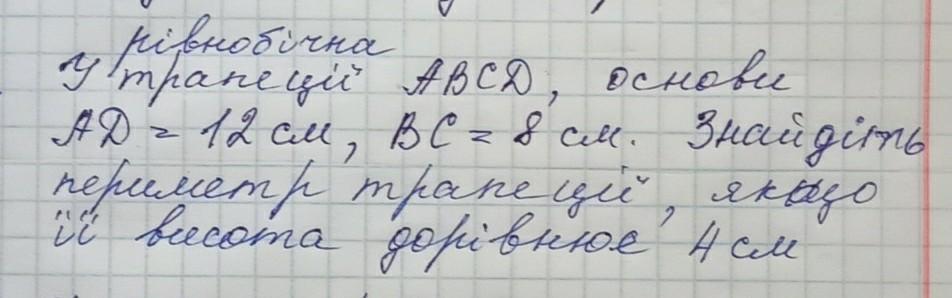 рівнобічна
У трапеції ABCD, основи
AD = 12 см, BC = 8 см. Знайдіть
периметр трапеції, якщо
її висота дорівнює 4 см